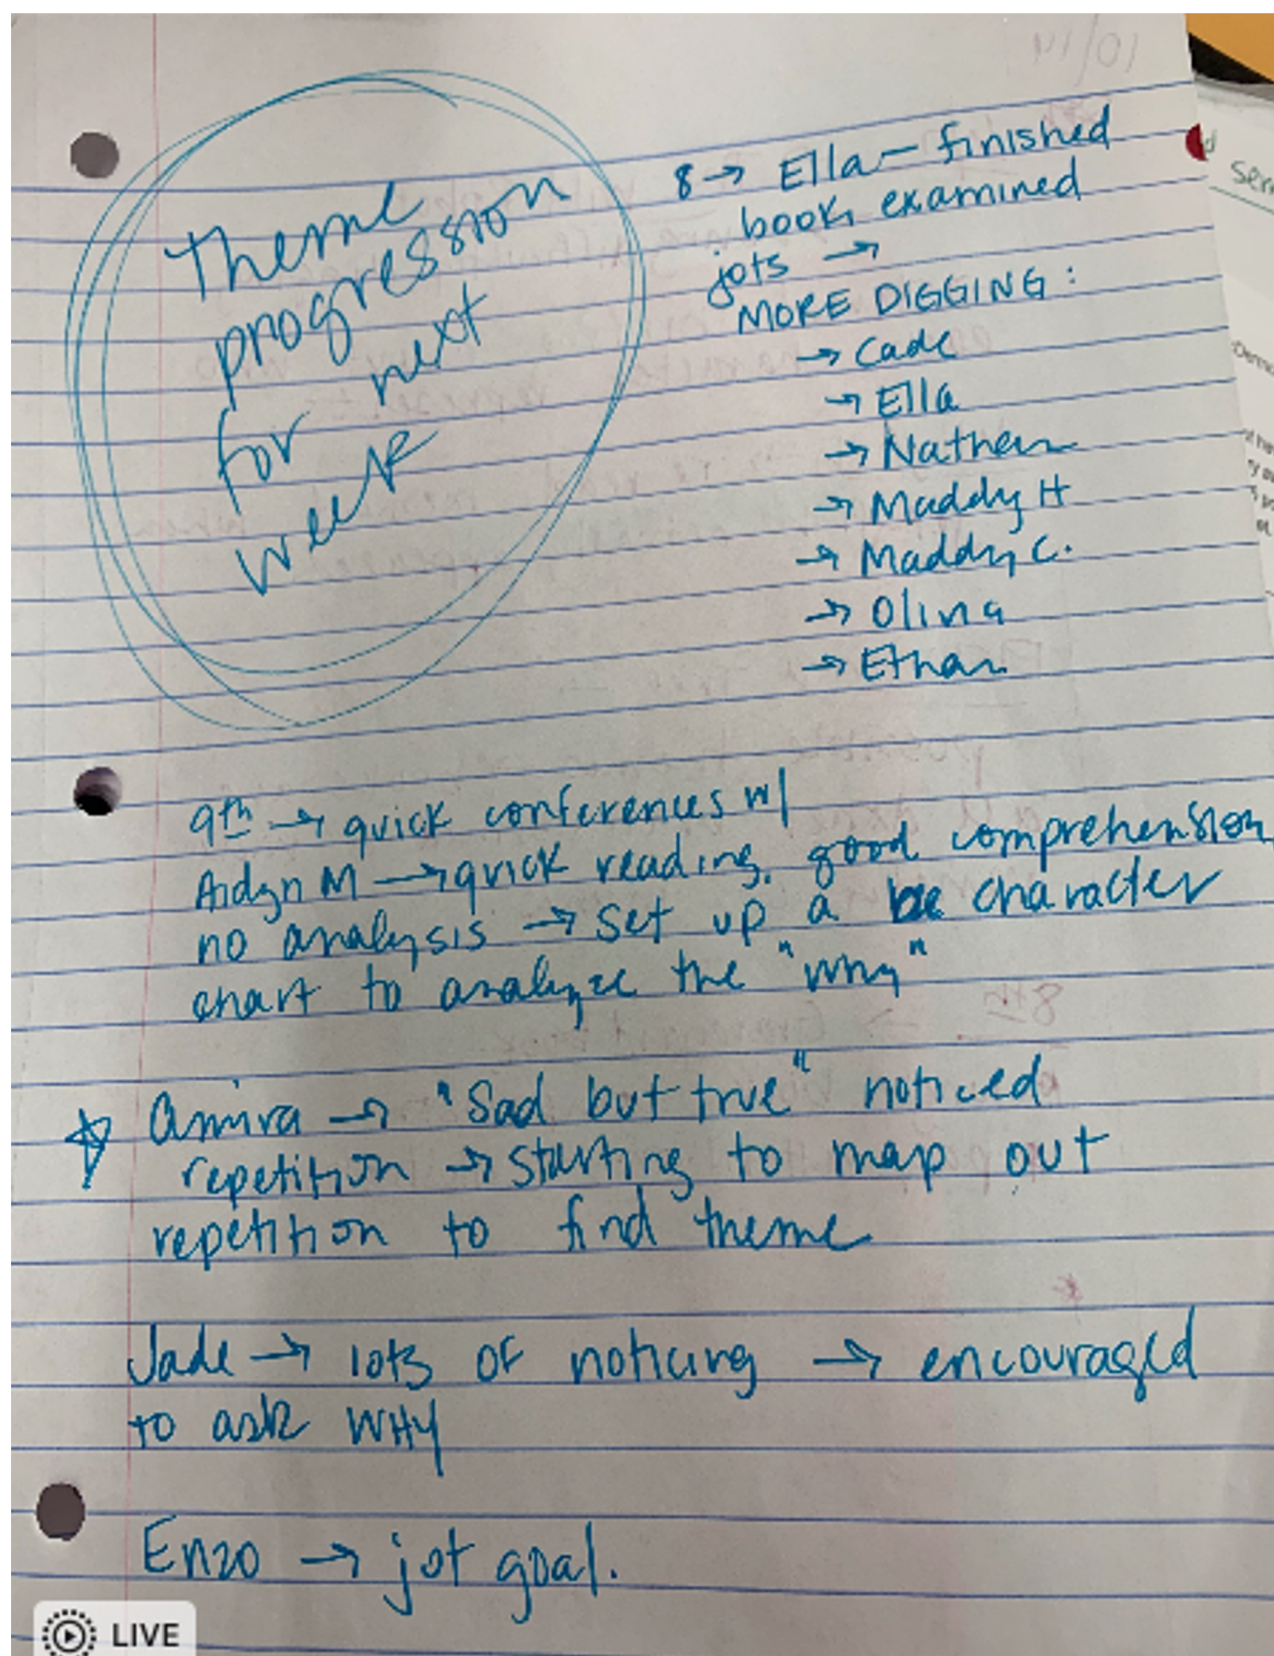 Theme
progression
for next
week
8 → Ella — finished
book, examined
jots →
MORE DIGGING :
→ Cade
→ Ella
→ Nathan
→ Maddy H
→ Maddy C.
→ Olina
→ Ethan
9th → quick conferences w/
Aidyn M → quick reading, good comprehension,
no analysis → set up a character
chart to analyze the "why"
☆ Amira → "Sad but true" noticed
repetition → starting to map out
repetition to find theme
Jade → lots of noticing → encouraged
to ask WHY
Enzo → jot goal.
LIVE